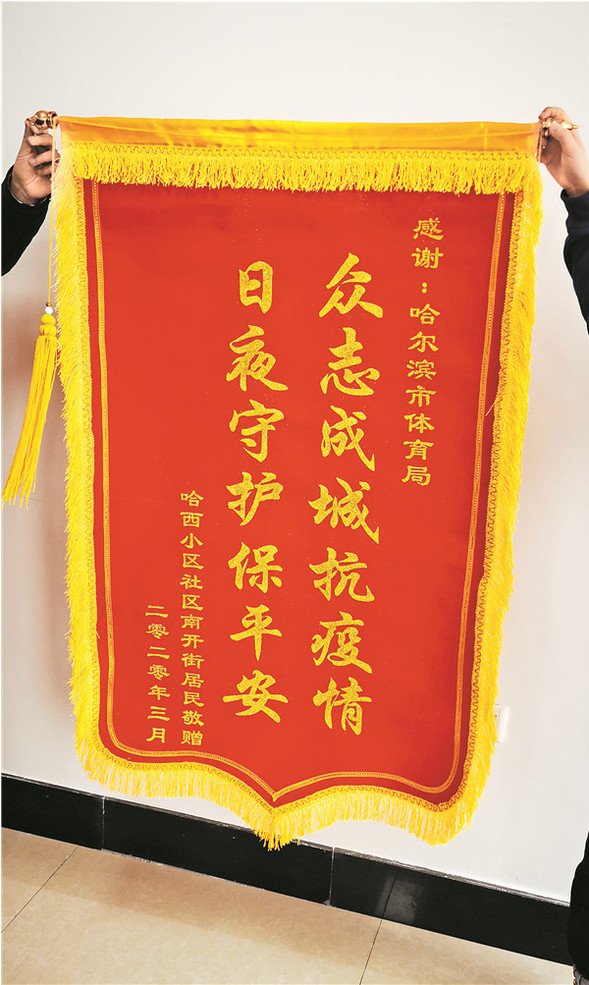 感谢：哈尔滨市体育局
众志成城抗疫情
日夜守护保平安
哈西小区社区南开街居民敬赠
二零二零年三月